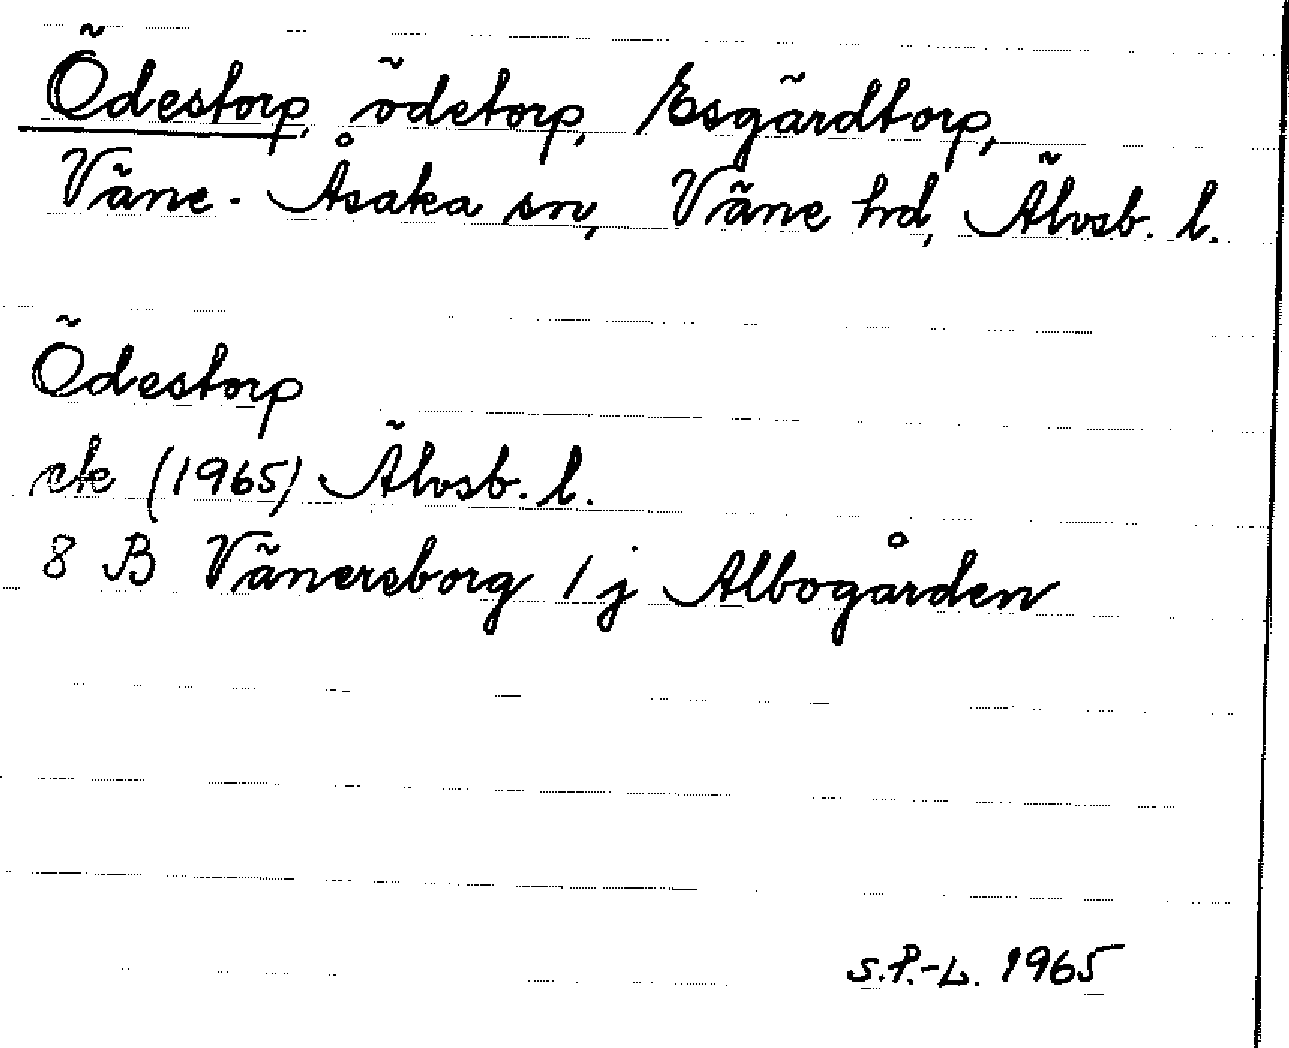 Ödestorp, ödetorp, Esgärdtorp,
Väne-Åsaka sn, Väne hd, Älvsb. l.
Ödestorp
ek (1965) Älvsb. l.
8 B Vänersborg 1 j Albogården
S.P.-L. 1965